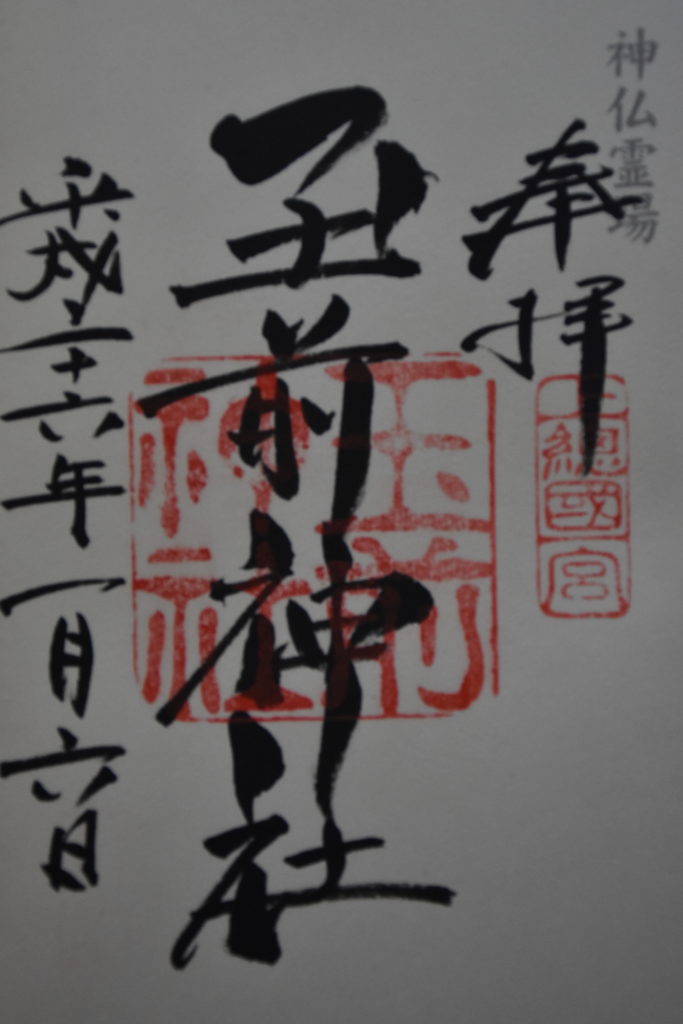 神仏霊場
奉拝
上總國一宮
玉前神社
玉前
神社
平成二十六年一月六日